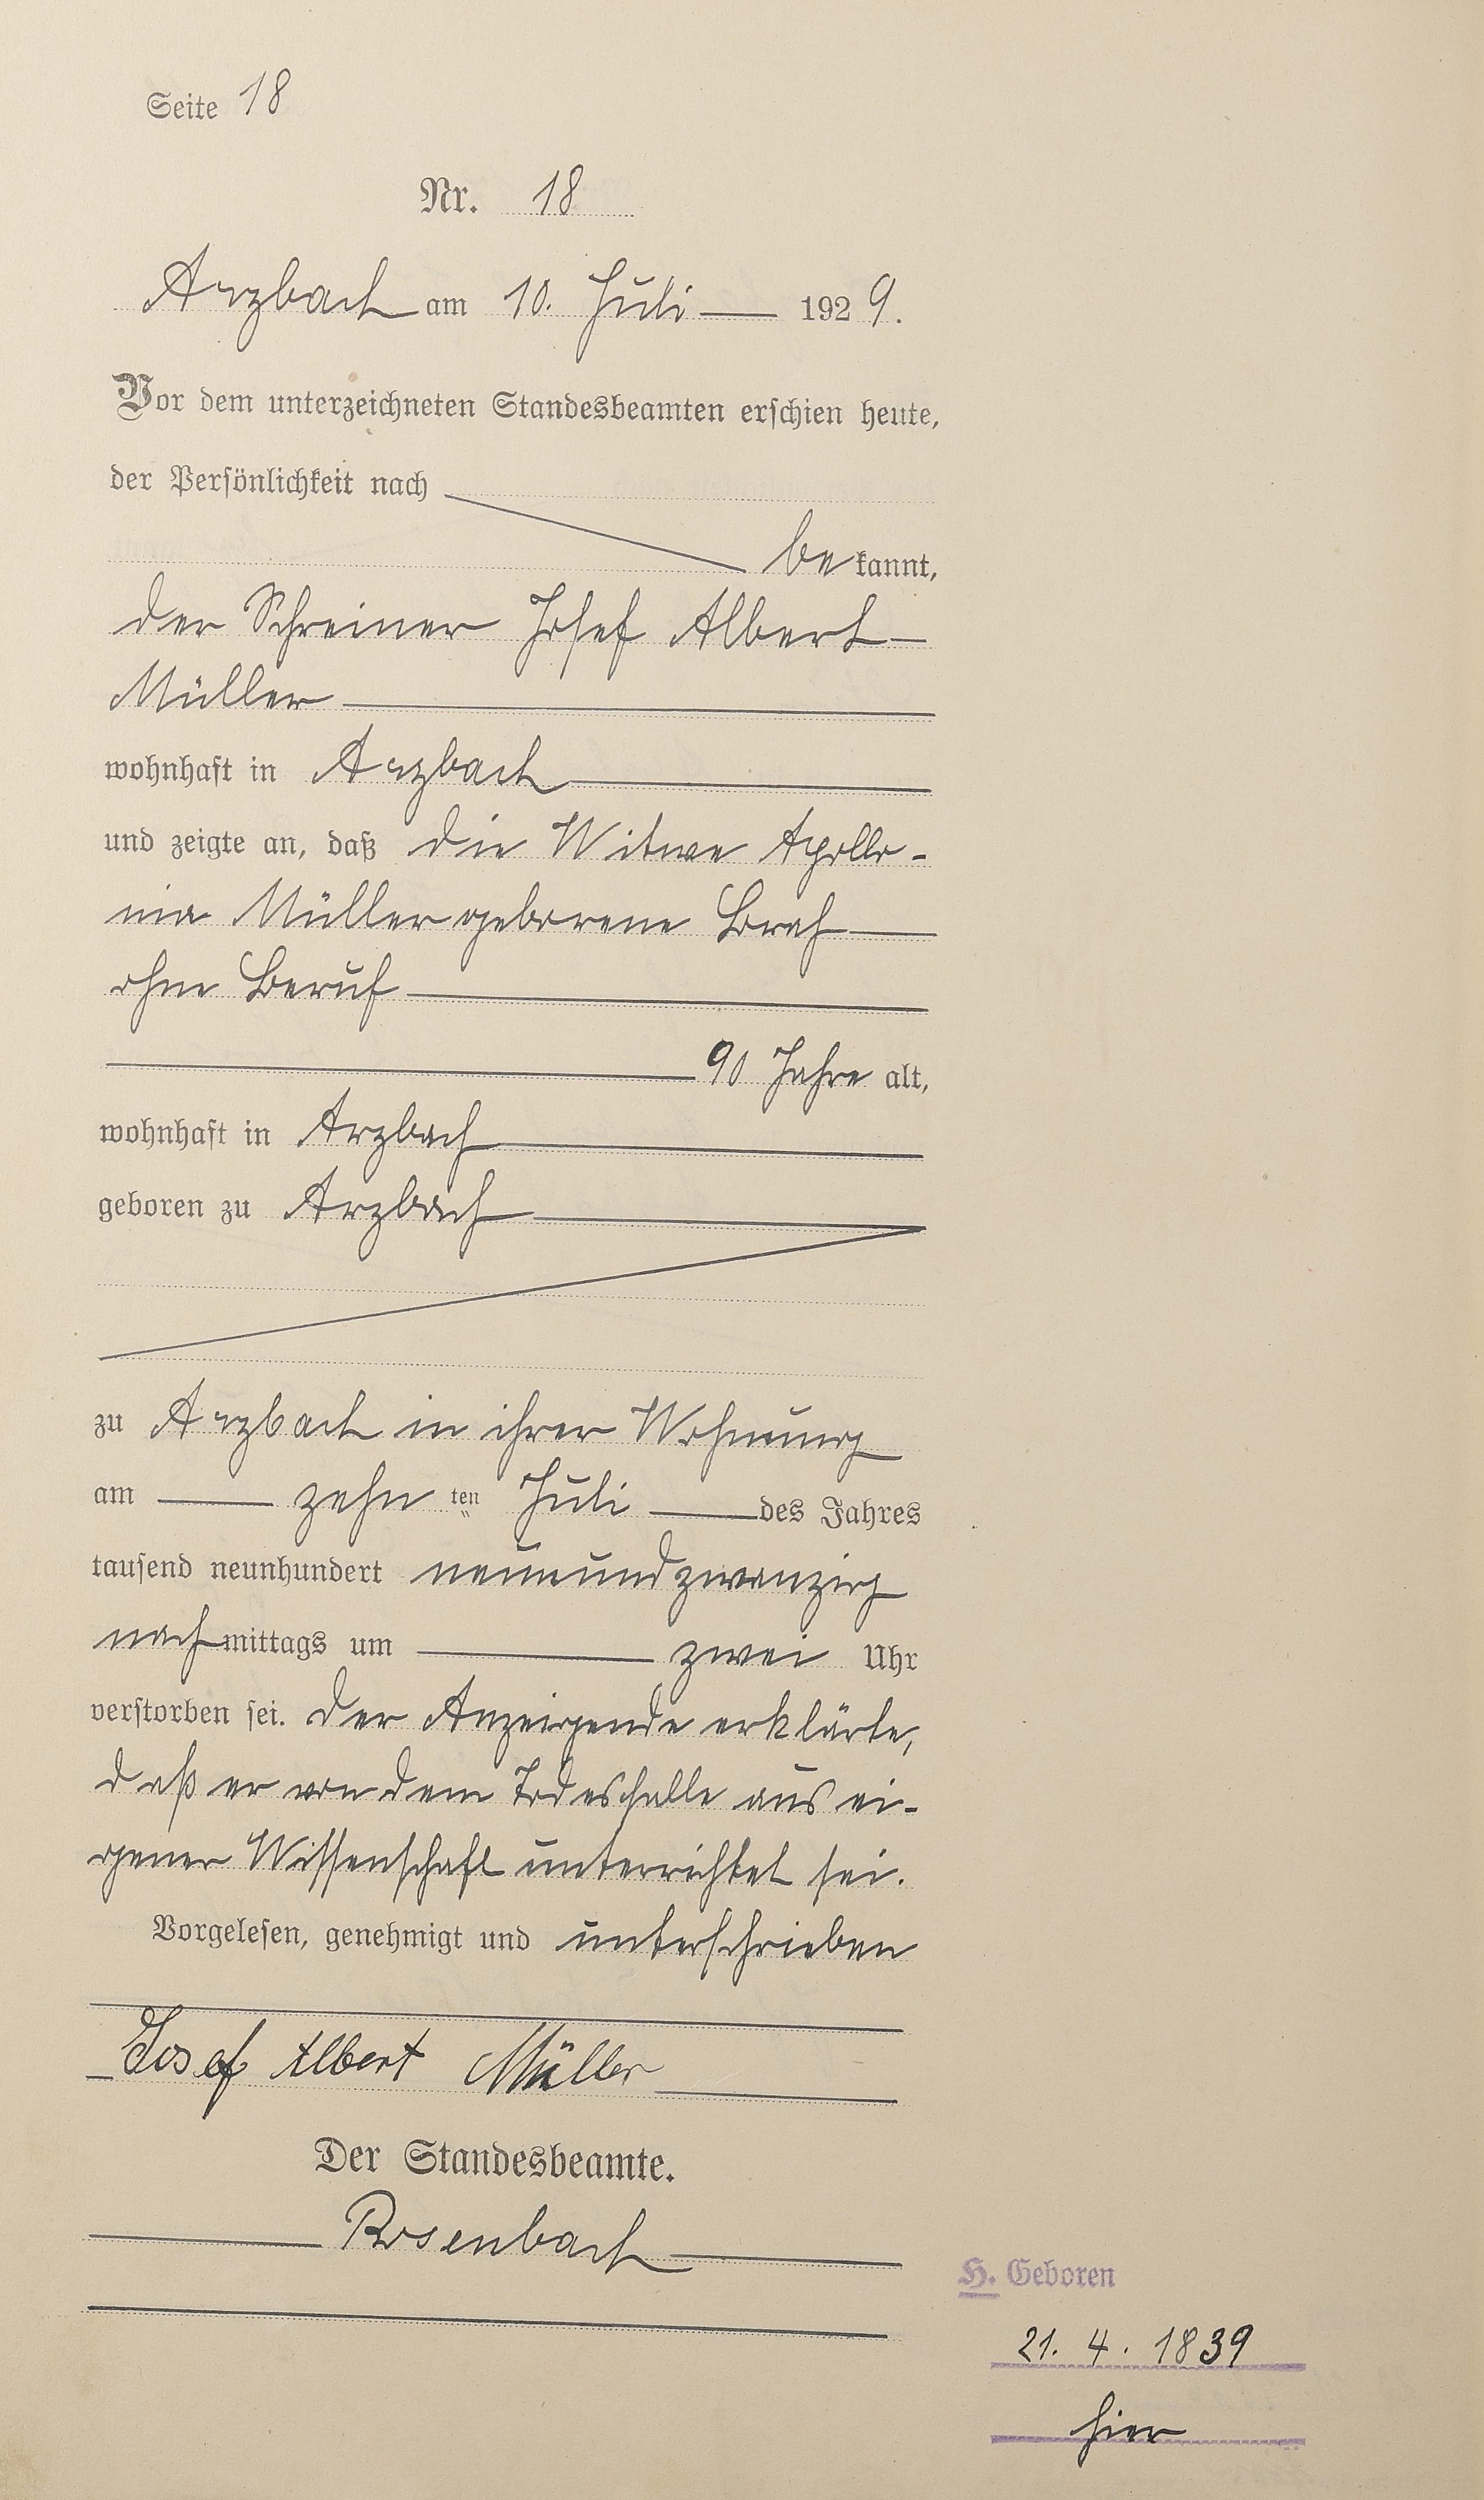 Seite 18
Nr. 18
Arzbach am 10. Juli 1929.
Vor dem unterzeichneten Standesbeamten erschien heute,
der Persönlichkeit nach
bekannt,
der Schreiner Josef Albert
Müller
wohnhaft in Arzbach
und zeigte an, daß die Witwe Apollo-
nia Müller geborene
ohne Beruf
90 Jahre alt,
wohnhaft in Arzbach
geboren zu Arzbach
zu Arzbach in ihrer Wohnung
am zehnten Juli des Jahres
tausend neunhundert neunundzwanzig
nachmittags um zwei Uhr
verstorben sei. Der Anzeigende erklärte,
daß er von dem Todesfalle aus ei-
gener Wissenschaft unterrichtet sei.
Vorgelesen, genehmigt und unterschrieben
Josef Albert Müller
Der Standesbeamte.
Rosenbach
H. Geboren
21. 4. 1839
hier